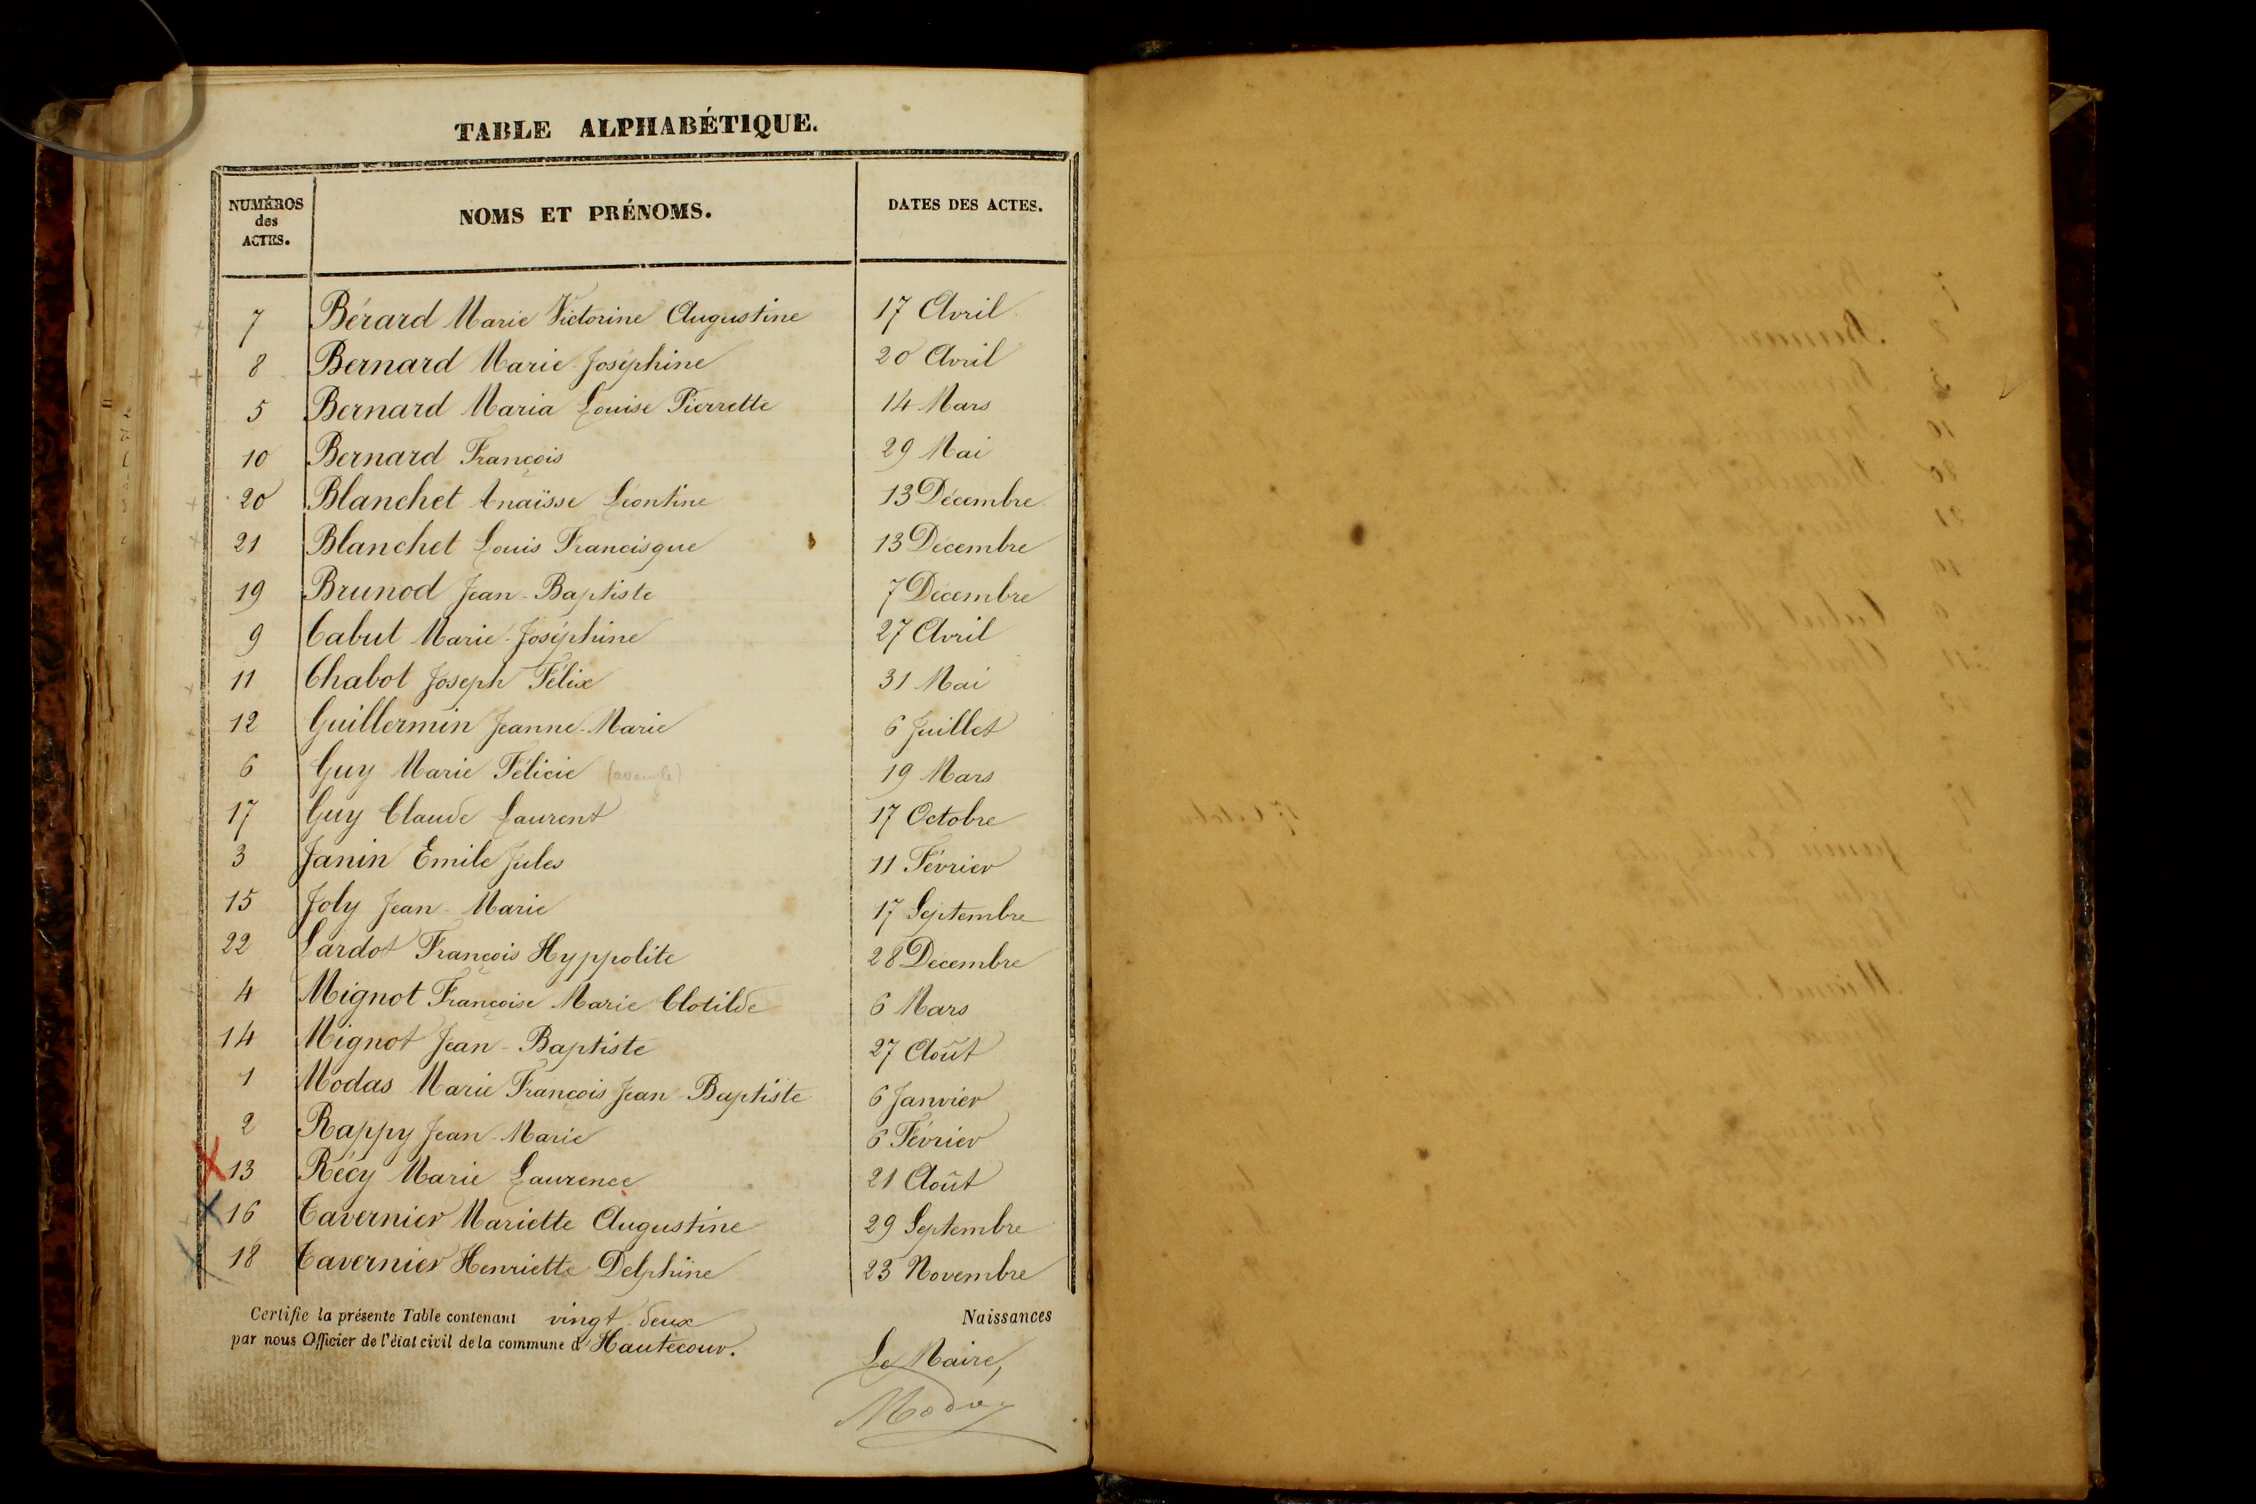 TABLE ALPHABÉTIQUE.
NUMÉROS des ACTES. NOMS ET PRÉNOMS. DATES DES ACTES.
7 Bérard Marie Victorine Augustine 17 Avril
8 Bernard Marie-Joséphine 20 Avril
5 Bernard Maria Louise Pierrette 14 Mars
10 Bernard François 29 Mai
20 Blanchet Anaïsse Léontine 13 Décembre
21 Blanchet Louis Francisque 13 Décembre
19 Brunod Jean-Baptiste 7 Décembre
9 Cabut Marie-Joséphine 27 Avril
11 Chabot Joseph Félix 31 Mai
12 Guillermin Jeanne-Marie 6 Juillet
6 Guy Marie Félicie (aveugle) 19 Mars
17 Guy Claude Laurent 17 Octobre
3 Janin Emile Jules 11 Février
15 Joly Jean-Marie 17 Septembre
22 Lardot François Hyppolite 28 Decembre
4 Mignot Françoise Marie Clotilde 6 Mars
14 Mignot Jean-Baptiste 27 Août
1 Modas Marie François Jean-Baptiste 6 Janvier
2 Rappy Jean-Marie 6 Février
13 Récy Marie Laurence 21 Août
16 Tavernier Mariette Augustine 29 Septembre
18 Tavernier Henriette Delphine 23 Novembre
Certifie la présente Table contenant vingt-deux Naissances
par nous Officier de l'état civil de la commune d'Hautecour.
Le Maire,